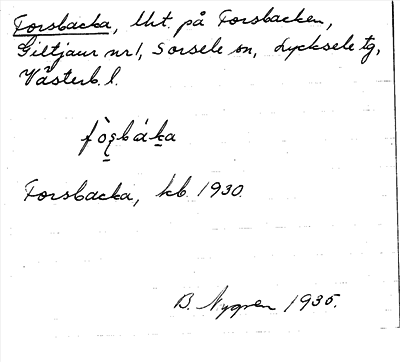 Forsbacka, lht. på Forsbacken,
Giltjaur nr 1, Sorsele sn, Lycksele tg,
Västerb. l.
Forsbacka, kb. 1930.
B. Nygren 1935.